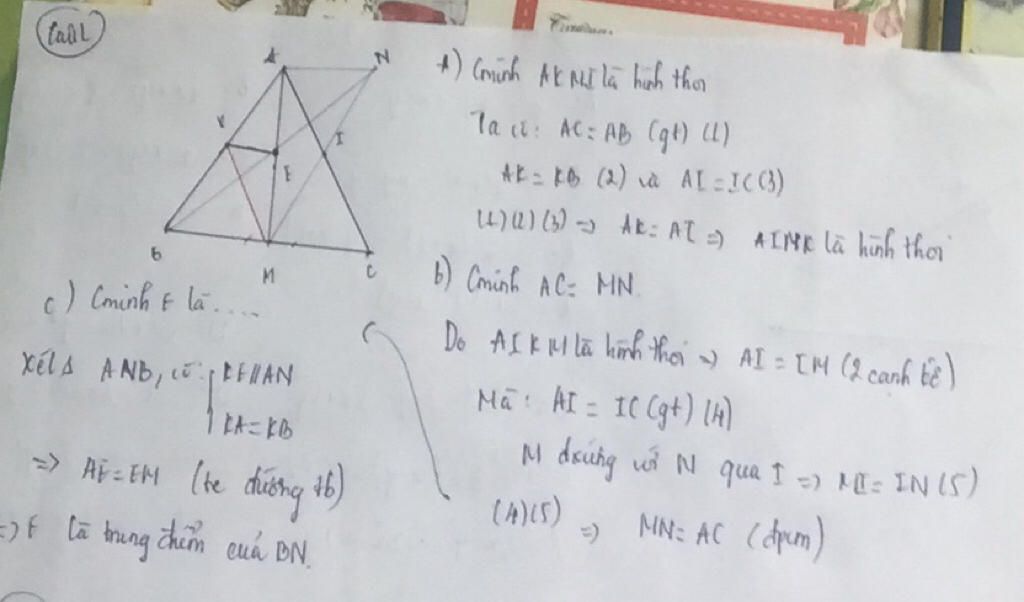 Câu 1
A
N
K
I
E
B
M
C
A) Cminh AKMI là hình thoi
Ta có: AC = AB (gt) (1)
AK = KB (2) và AI = IC (3)
(1) (2) (3) => AK = AI => AIMK là hình thoi
b) Cminh AC = MN
Do AIKM là hình thoi => AI = IM (2 cạnh bê)
Mà: AI = IC (gt) (4)
M đxứng với N qua I => MI = IN (5)
(4) (5) => MN = AC (đpcm)
c) Cminh E là ....
Xét Δ ANB, có: KE // AN
KA = KB
=> AE = EM (tc đường tb)
=> E là trung điểm của BN.